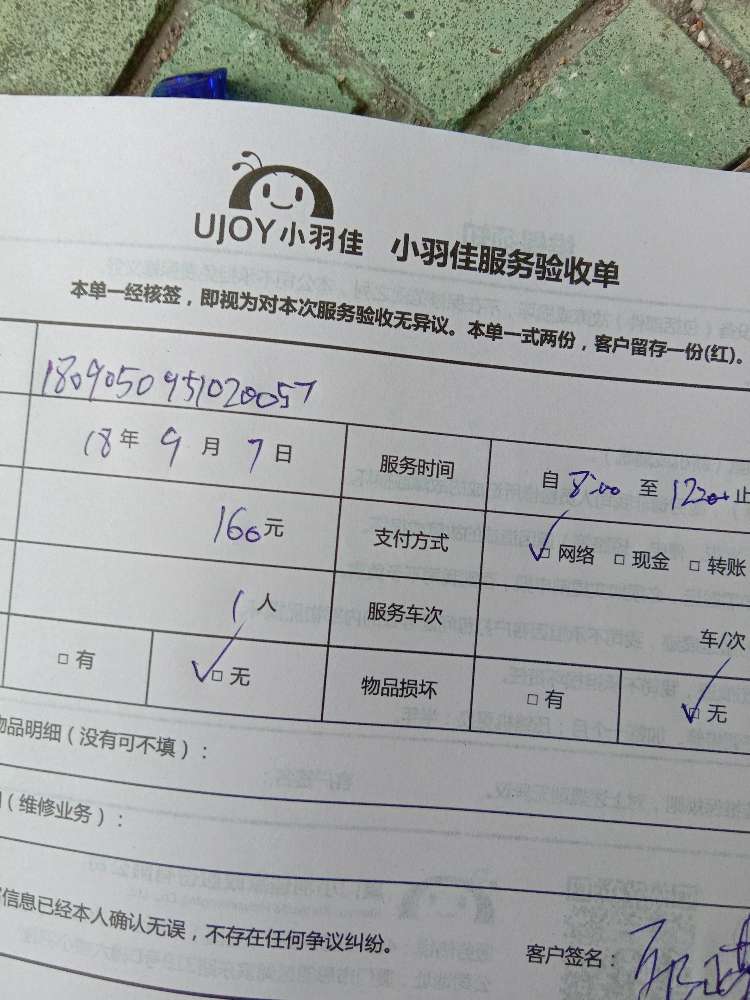 UJOY小羽佳 小羽佳服务验收单
本单一经核签，即视为对本次服务验收无异议。本单一式两份，客户留存一份(红)。
180905095102005７
18年 9 月 7 日 服务时间 自 8:00 至 12:00 止
160元 支付方式 ☑ 网络 □ 现金 □ 转账
1 人 服务车次 车/次
□ 有 ☑ 无 物品损坏 □ 有 ☑ 无
物品明细（没有可不填）：
（维修业务）：
信息已经本人确认无误，不存在任何争议纠纷。
客户签名：